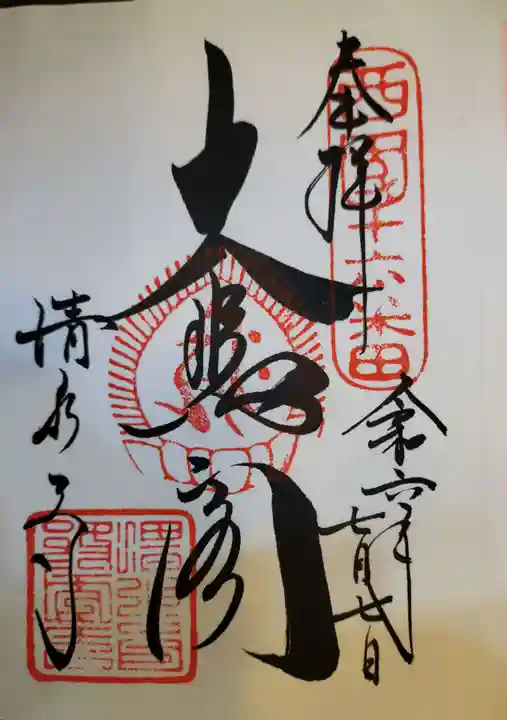 奉拝
西国十六番
令六年
七月七日
大悲閣
清水寺